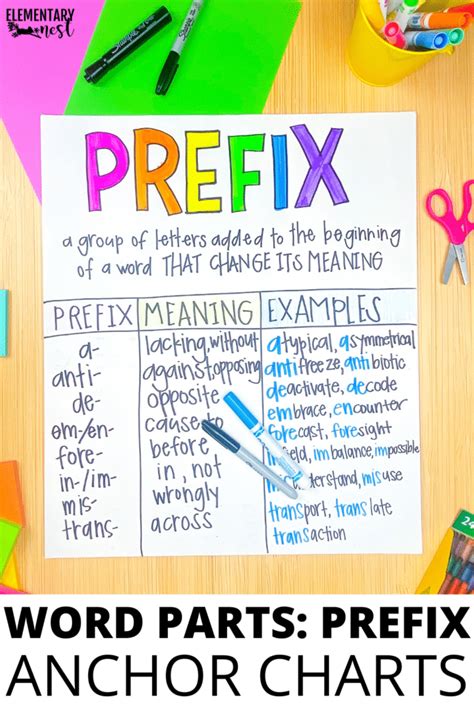 ELEMENTARY
nest
Sharpie
PREFIX
a group of letters added to the beginning
of a word THAT CHANGE ITS MEANING
PREFIX MEANING EXAMPLES
a- lacking, without atypical, asymmetrical
anti- against, opposing antifreeze, antibiotic
de- opposite deactivate, decode
em/en- cause to embrace, encounter
fore- before forecast, foresight
in-/im- in, not field, imbalance, impossible
mis- wrongly understand, misuse
trans- across transport, translate
transaction
24
WORD PARTS: PREFIX
ANCHOR CHARTS